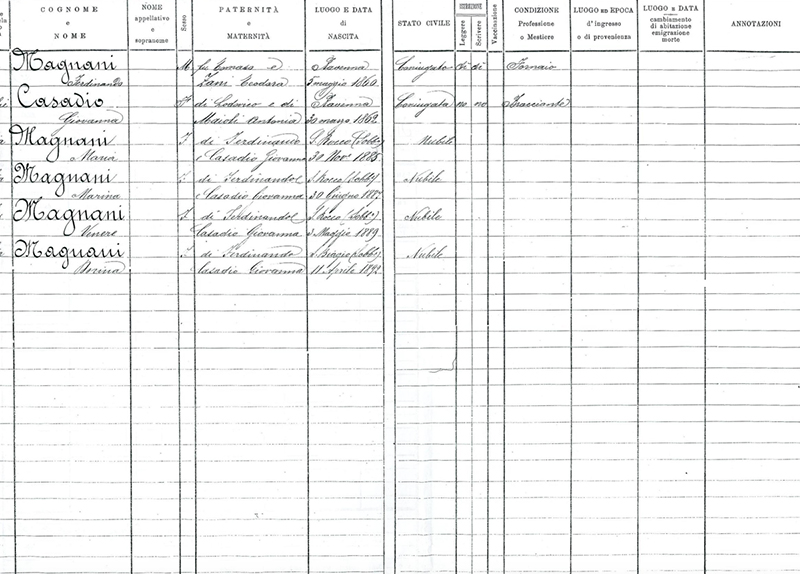 COGNOME e NOME
NOME appellativo e soprannome
Sesso
PATERNITÀ e MATERNITÀ
LUOGO E DATA di NASCITA
STATO CIVILE
ISTRUZIONE
Leggere
Scrivere
Vaccinazione
CONDIZIONE Professione o Mestiere
LUOGO ED EPOCA d'ingresso o di provenienza
LUOGO E DATA cambiamento di abitazione emigrazione morte
ANNOTAZIONI
Magnani M fu Tomaso e Ravenna Coniugato si si Fornaio
Ferdinando Zani Teodora 5 maggio 1860
Casadio F di Lodovico e di Ravenna Coniugata no no Bracciante
Giovanna Maioli Antonia 30 marzo 1862
Magnani F di Ferdinando S. Rocco Nubile
Maria e Casadio Giovanna 30 Nov 1885
Magnani F di Ferdinando e S. Rocco Nubile
Marina Casadio Giovanna 30 Giugno 1887
Magnani F di Ferdinando e S. Rocco Nubile
Venere Casadio Giovanna Maggio 1889
Magnani F di Ferdinando S. Biagio Nubile
Casadio Giovanna 11 Aprile 1892